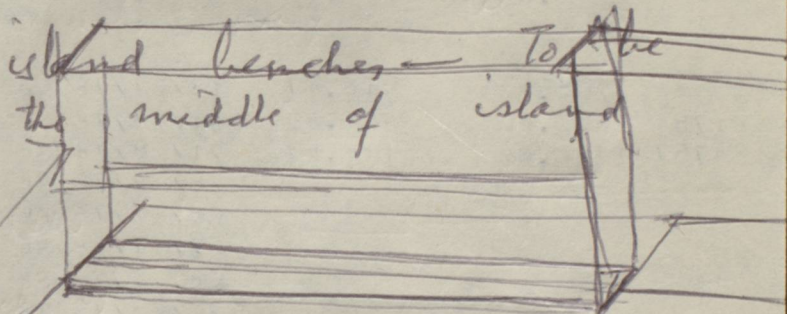 island benches — To be
the middle of island